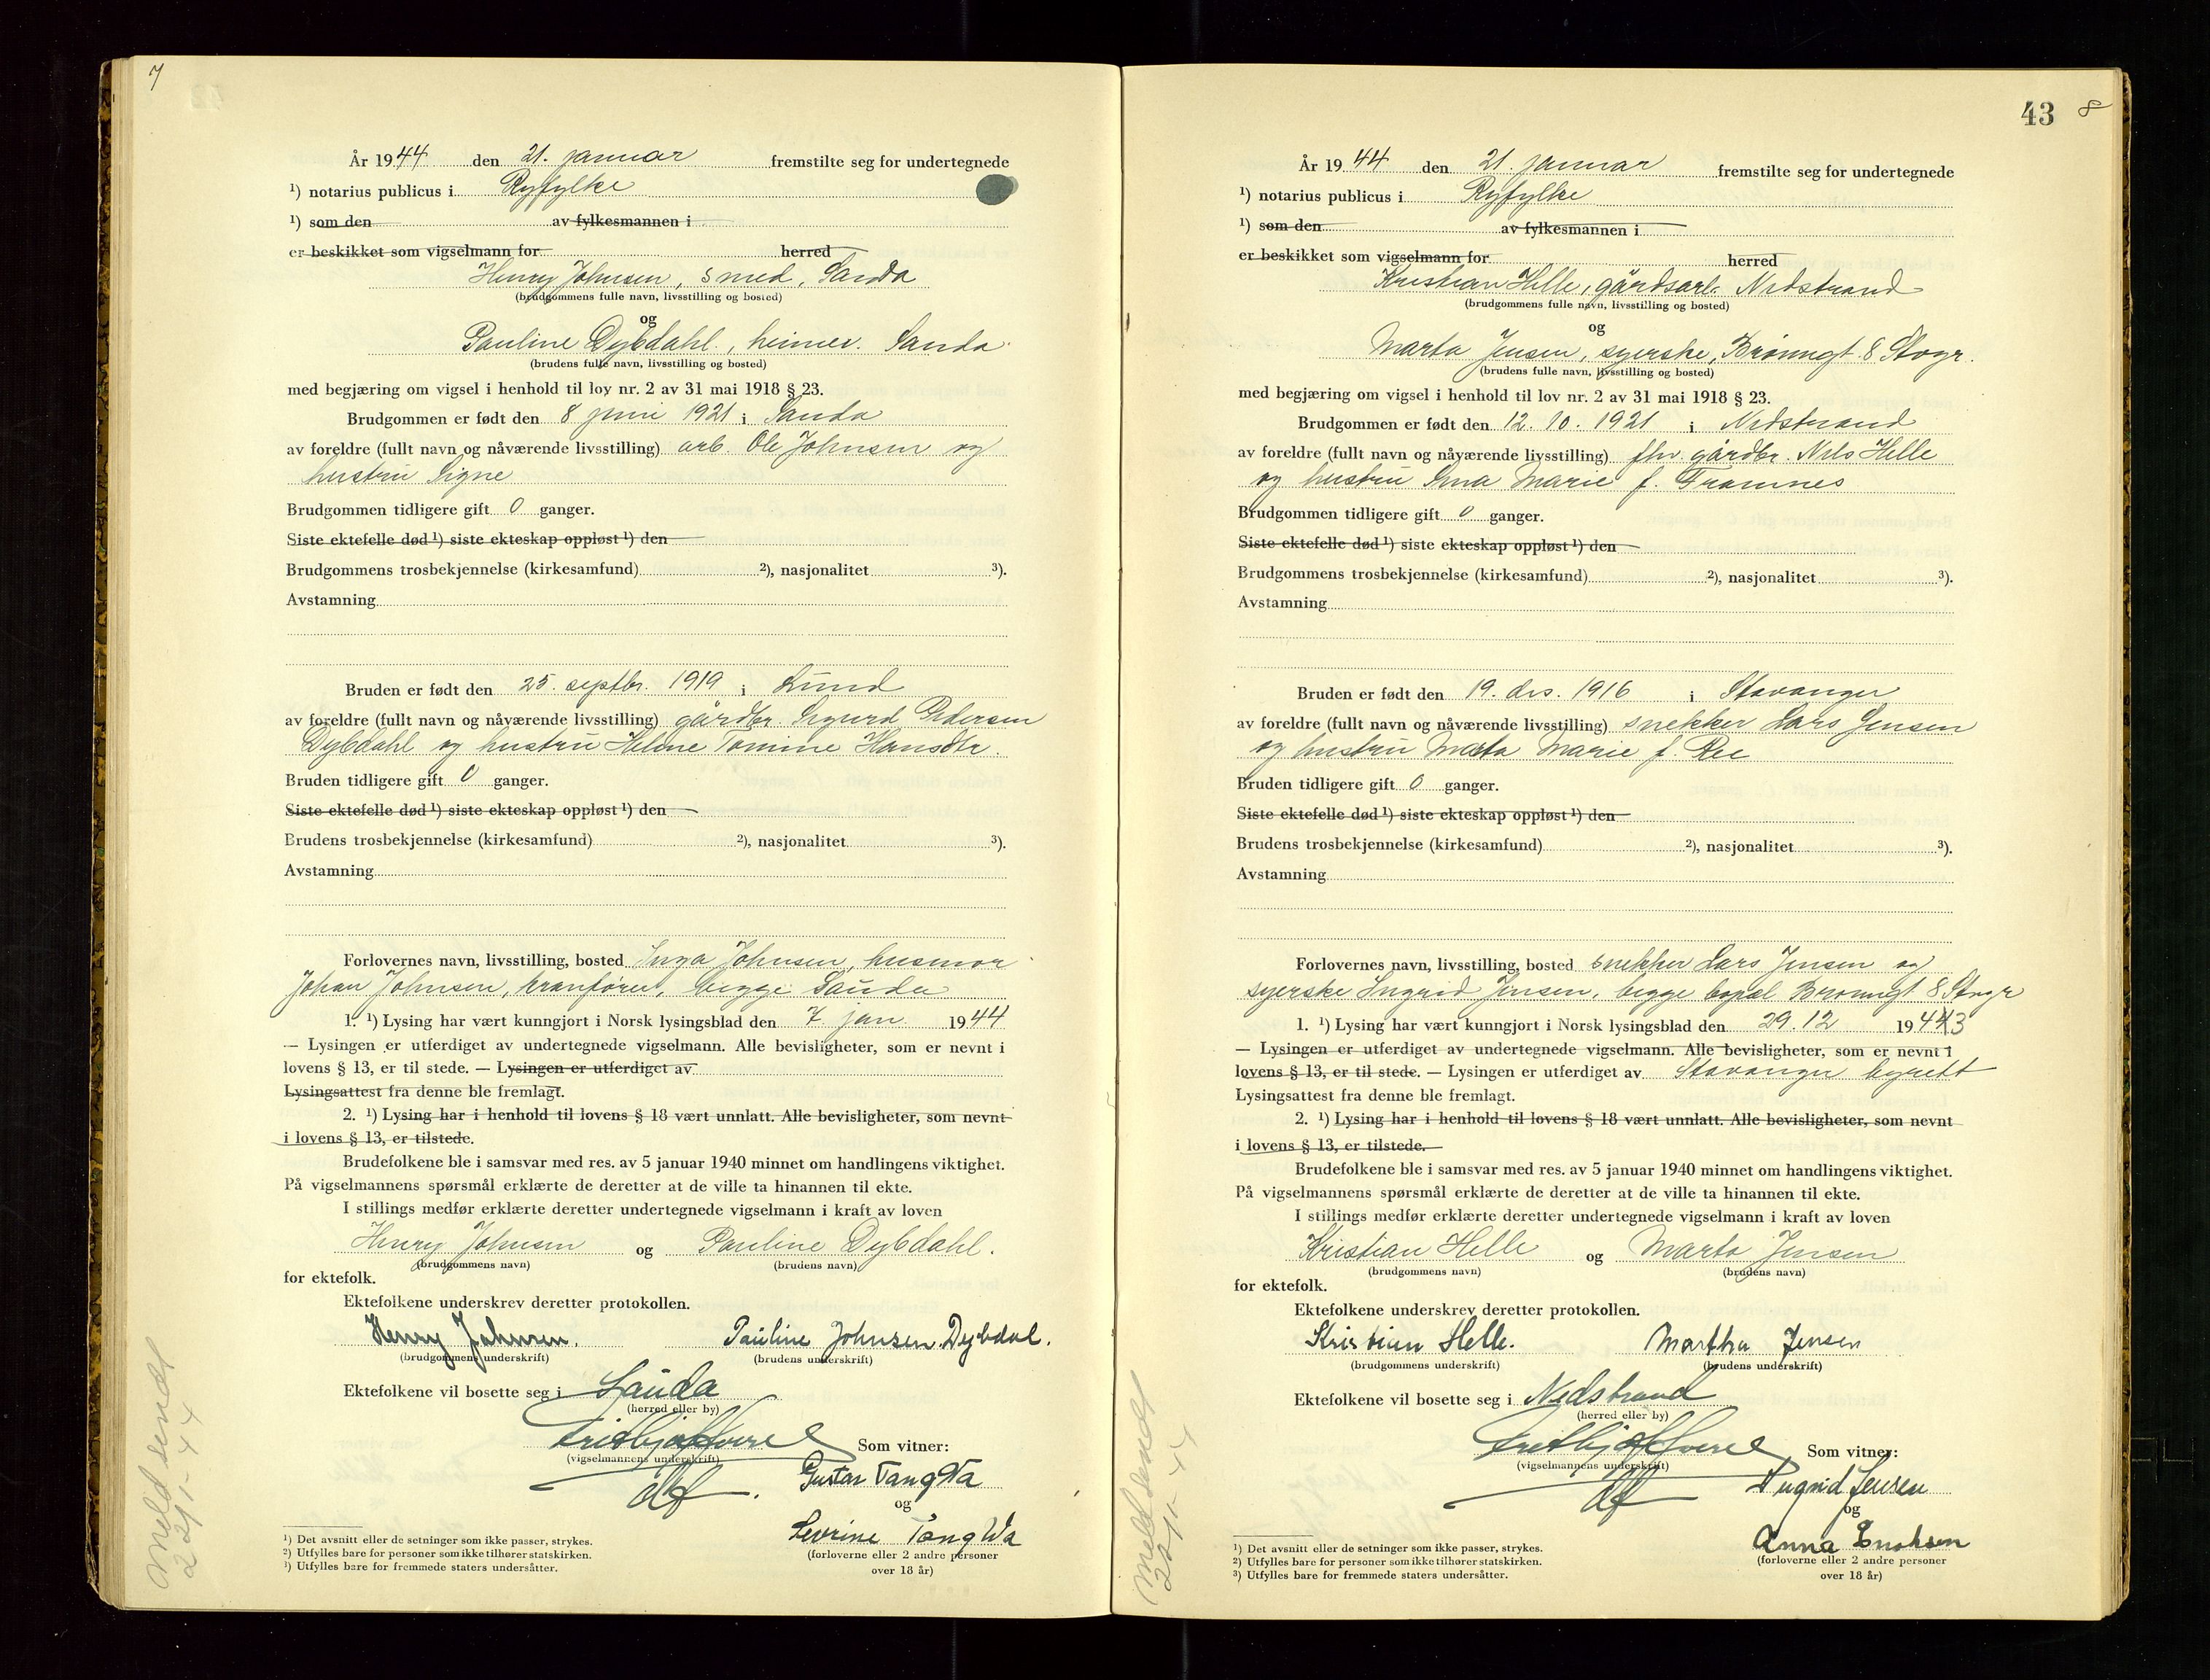 7
År 1944 den 21. januar fremstilte seg for undertegnede
¹) notarius publicus i Ryfylke
¹) som den av fylkesmannen i
er beskikket som vigselmann for herred
Henry Johnsen, smed, Sauda
(brudgommens fulle navn, livsstilling og bosted)
og
Pauline Dybdahl, heimev. Sauda
(brudens fulle navn, livsstilling og bosted)
med begjæring om vigsel i henhold til lov nr. 2 av 31 mai 1918 § 23.
Brudgommen er født den 8 juni 1921 i Sauda
av foreldre (fullt navn og nåværende livsstilling) arb. Ole Johnsen og
hustru Signe
Brudgommen tidligere gift 0 ganger.
Siste ektefelle død ¹) siste ekteskap oppløst ¹) den
Brudgommens trosbekjennelse (kirkesamfund) ²), nasjonalitet ³).
Avstamning
Bruden er født den 25. septbr. 1919 i Lund
av foreldre (fullt navn og nåværende livsstilling) gårdbr. Sigurd Pedersen
Dybdahl og hustru Helene Tomine Hansdtr.
Bruden tidligere gift 0 ganger.
Siste ektefelle død ¹) siste ekteskap oppløst ¹) den
Brudens trosbekjennelse (kirkesamfund) ²), nasjonalitet ³).
Avstamning
Forlovernes navn, livsstilling, bosted Inga Johnsen, husmor
Johan Johnsen, kranfører, begge Sauda
1. ¹) Lysing har vært kunngjort i Norsk lysingsblad den 7. jan. 1944
— Lysingen er utferdiget av undertegnede vigselmann. Alle bevisligheter, som er nevnt i
lovens § 13, er til stede. — Lysingen er utferdiget av
Lysingsattest fra denne ble fremlagt.
2. ¹) Lysing har i henhold til lovens § 18 vært unnlatt. Alle bevisligheter, som nevnt
i lovens § 13, er tilstede.
Brudefolkene ble i samsvar med res. av 5 januar 1940 minnet om handlingens viktighet.
På vigselmannens spørsmål erklærte de deretter at de ville ta hinannen til ekte.
I stillings medfør erklærte deretter undertegnede vigselmann i kraft av loven
Henry Johnsen og Pauline Dybdahl.
(brudgommens navn) (brudens navn)
for ektefolk.
Ektefolkene underskrev deretter protokollen.
Henry Johnsen. Pauline Johnsen. Dybdal.
(brudgommens underskrift) (brudens underskrift)
Ektefolkene vil bosette seg i Sauda
(herred eller by)
Som vitner:
(vigselmannens underskrift)
Gustav Tangwa
df.
og
Sevrine Tangwa
(forloverne eller 2 andre personer
over 18 år)
¹) Det avsnitt eller de setninger som ikke passer, strykes.
²) Utfylles bare for personer som ikke tilhører statskirken.
³) Utfylles bare for fremmede staters undersåtter.
Meld sendt
22/1-44
43 8
År 1944 den 21. januar fremstilte seg for undertegnede
¹) notarius publicus i Ryfylke
¹) som den av fylkesmannen i
er beskikket som vigselmann for herred
Kristian Helle, gårdsarb. Nedstrand
(brudgommens fulle navn, livsstilling og bosted)
og
Marta Jensen, syerske, Brønngt. 8 Stvgr.
(brudens fulle navn, livsstilling og bosted)
med begjæring om vigsel i henhold til lov nr. 2 av 31 mai 1918 § 23.
Brudgommen er født den 12. 10. 1921 i Nedstrand
av foreldre (fullt navn og nåværende livsstilling) fhv. gårdbr. Nils Helle
og hustru Marie f. Framnes
Brudgommen tidligere gift 0 ganger.
Siste ektefelle død ¹) siste ekteskap oppløst ¹) den
Brudgommens trosbekjennelse (kirkesamfund) ²), nasjonalitet ³).
Avstamning
Bruden er født den 19. des. 1916 i Stavanger
av foreldre (fullt navn og nåværende livsstilling) snekker Lars Jensen
og hustru Marta Marie f. Ree
Bruden tidligere gift 0 ganger.
Siste ektefelle død ¹) siste ekteskap oppløst ¹) den
Brudens trosbekjennelse (kirkesamfund) ²), nasjonalitet ³).
Avstamning
Forlovernes navn, livsstilling, bosted snekker Lars Jensen og
syerske Ingrid Jensen, begge bopæl Brønngt 8 Stvgr
1. ¹) Lysing har vært kunngjort i Norsk lysingsblad den 29. 12 19443
— Lysingen er utferdiget av undertegnede vigselmann. Alle bevisligheter, som er nevnt i
lovens § 13, er til stede. — Lysingen er utferdiget av Stavanger byrett
Lysingsattest fra denne ble fremlagt.
2. ¹) Lysing har i henhold til lovens § 18 vært unnlatt. Alle bevisligheter, som nevnt
i lovens § 13, er tilstede.
Brudefolkene ble i samsvar med res. av 5 januar 1940 minnet om handlingens viktighet.
På vigselmannens spørsmål erklærte de deretter at de ville ta hinannen til ekte.
I stillings medfør erklærte deretter undertegnede vigselmann i kraft av loven
Kristian Helle og Marta Jensen
(brudgommens navn) (brudens navn)
for ektefolk.
Ektefolkene underskrev deretter protokollen.
Kristian Helle. Martha Jensen
(brudgommens underskrift) (brudens underskrift)
Ektefolkene vil bosette seg i Nedstrand
(herred eller by)
Som vitner:
(vigselmannens underskrift)
Ingrid Jensen
df
og
Anna Enoksen
(forloverne eller 2 andre personer
over 18 år)
¹) Det avsnitt eller de setninger som ikke passer, strykes.
²) Utfylles bare for personer som ikke tilhører statskirken.
³) Utfylles bare for fremmede staters undersåtter.
Meld sendt
22/1-44